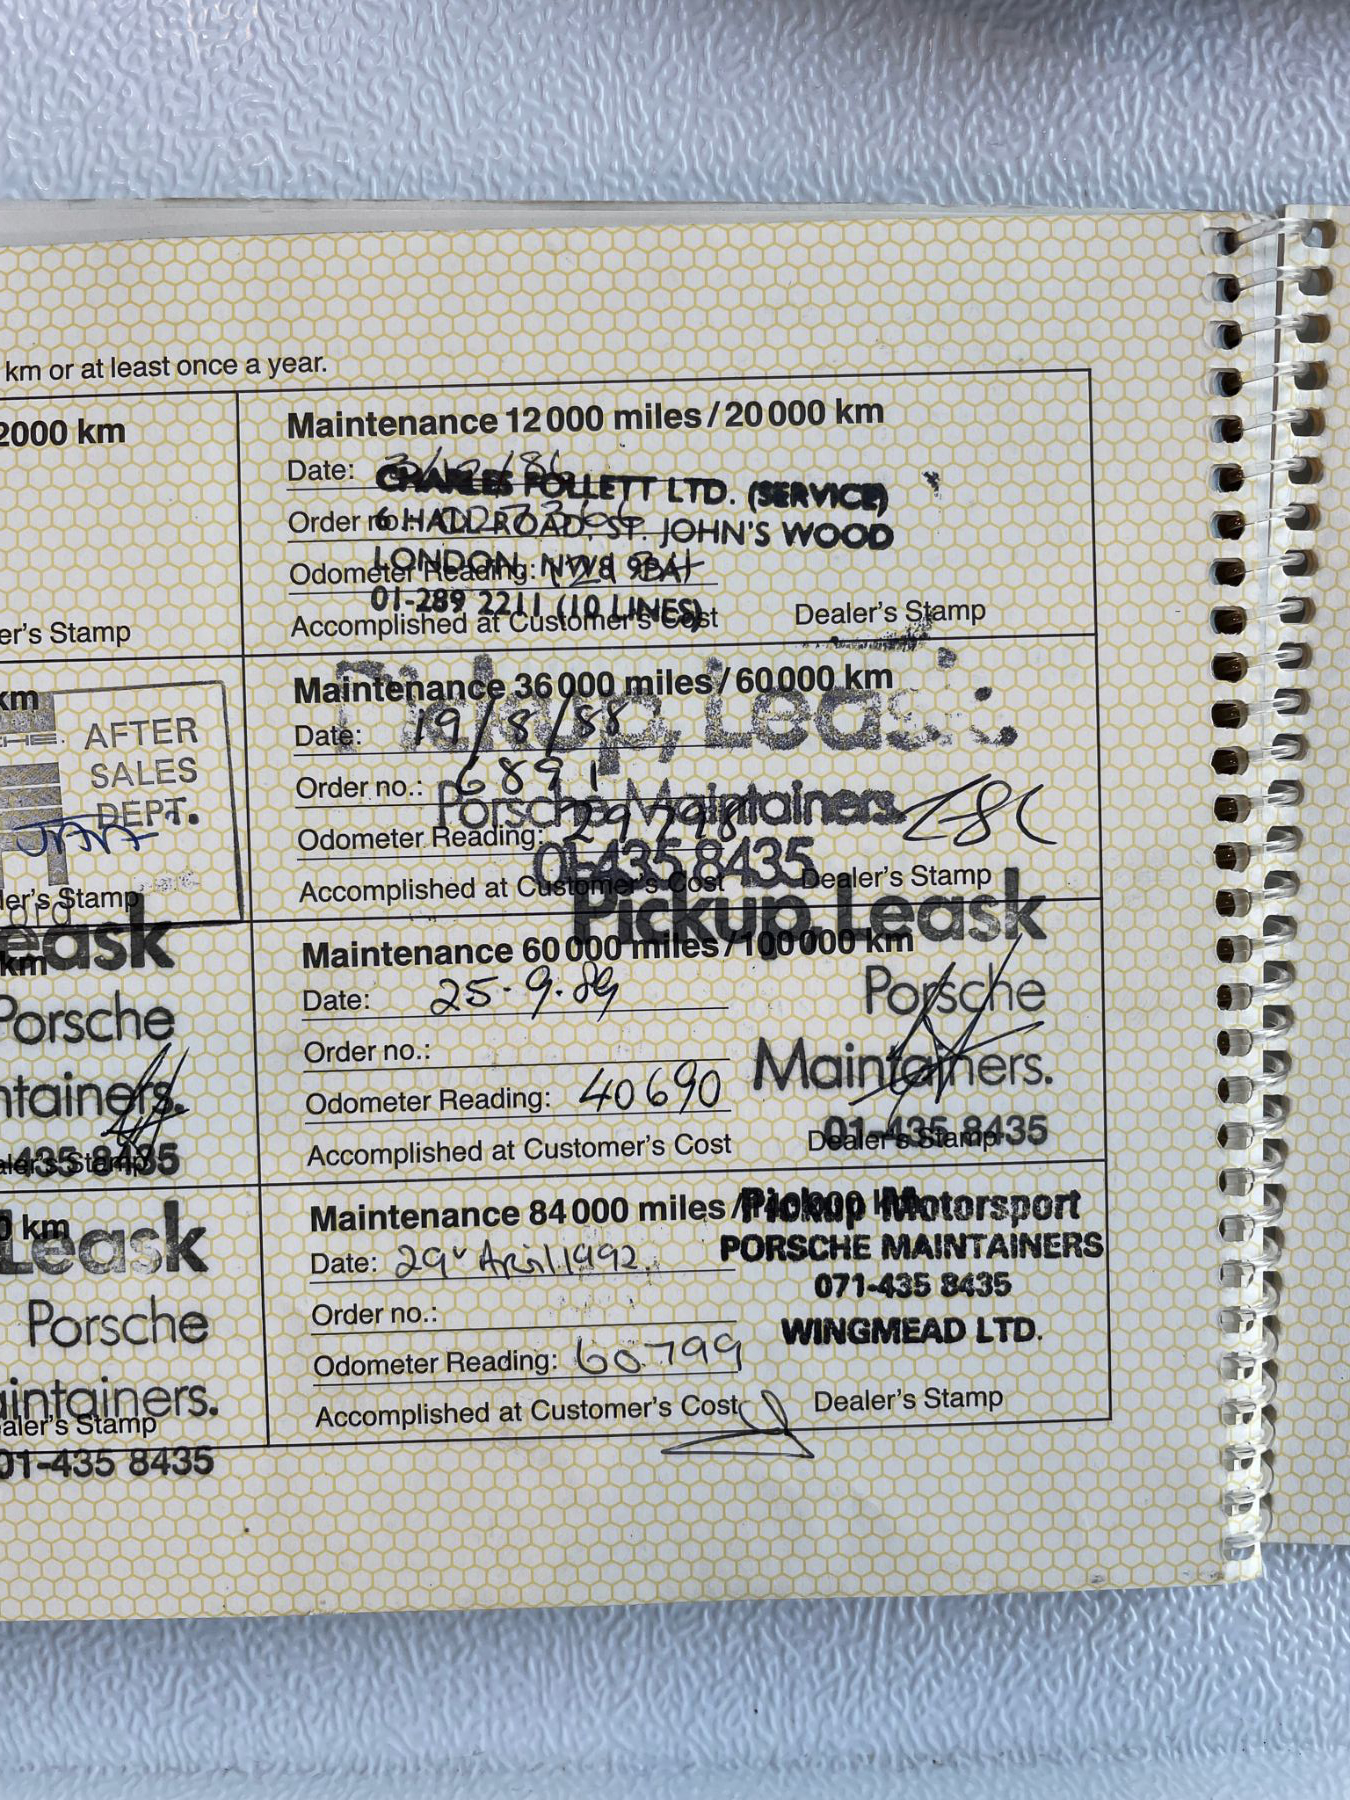 km or at least once a year.
2000 km
er's Stamp
km
AFTER
SALES
DEPT.
ler's Stamp
eask
km
Porsche
ntainers.
435 8435
aler's Stamp
0 km
Leask
Porsche
aintainers.
aler's Stamp
01-435 8435
Maintenance 12 000 miles / 20 000 km
Date:
CHARLES FOLLETT LTD. (SERVICE)
Order no.:
6 HALL ROAD, ST. JOHN'S WOOD
LONDON, NW8
Odometer Reading:
01-289 2211 (10 LINES)
Accomplished at Customer's Cost
Dealer's Stamp
Pickup, Leask
Maintenance 36 000 miles / 60 000 km
Date: 19/8/88
Order no.: 6891
Porsche Maintainers.
Odometer Reading: 29798
01-435 8435
Accomplished at Customer's Cost
Dealer's Stamp
Pickup, Leask
Maintenance 60 000 miles / 100 000 km
Date: 25.9.89
Porsche
Order no.:
Maintainers.
Odometer Reading: 40690
01-435 8435
Accomplished at Customer's Cost
Dealer's Stamp
Pickup Motorsport
Maintenance 84 000 miles / km
PORSCHE MAINTAINERS
Date: April 1992.
071-435 8435
Order no.:
WINGMEAD LTD.
Odometer Reading: 60799
Accomplished at Customer's Cost
Dealer's Stamp